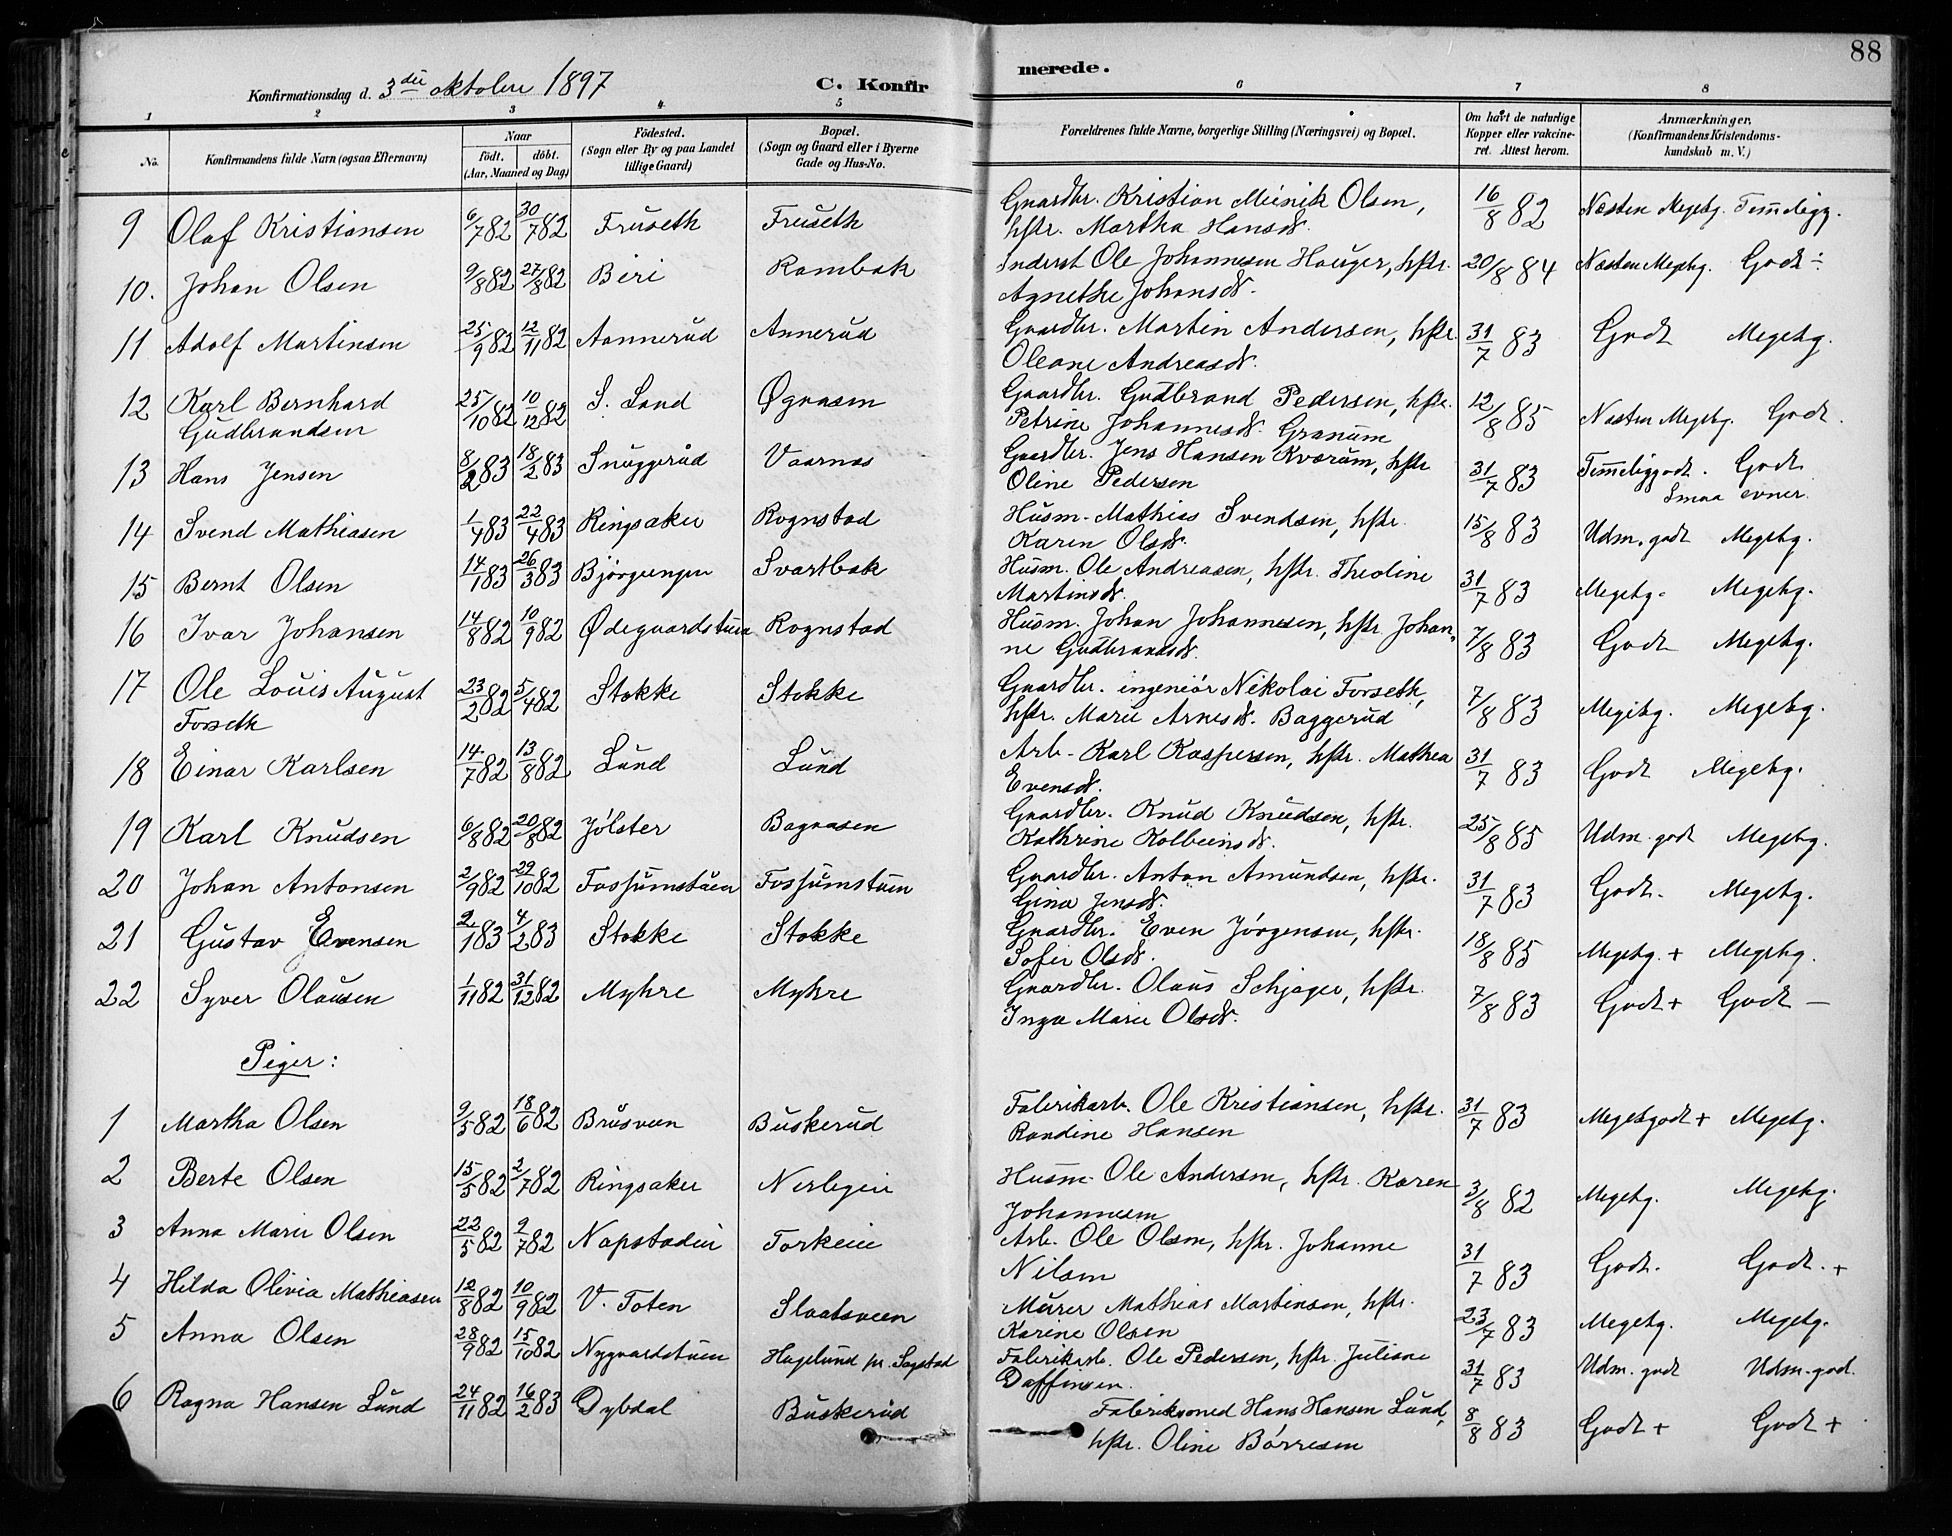 88
Konfirmationsdag d. 3die oktober 1897 C. Konfirmerede.
1 2 3 4 5 6 7 8
No. Konfirmandens fulde Navn (ogsaa Efternavn) Naar født. døbt. (Aar, Maaned og Dag) Fødested. (Sogn eller By og paa Landet tillige Gaard) Bopæl. (Sogn og Gaard eller i Byerne Gade og Hus-No. Forældrenes fulde Navne, borgerlige Stilling (Næringsvei) og Bopæl. Om havt de naturlige Kopper eller vakcineret. Attest herom. Anmærkninger. (Konfirmandens Kristendomskundskab m. V.)
9 Olaf Kristiansen 6/7 82 30/7 82 Fruseth Fruseth Gaardbr. Kristian Meinik Olsen, hstr. Martha Hansdr. 16/8 82 Næsten Megetg. Temmeligg.
10. Johan Olsen 9/8 82 27/8 82 Biri Rambak Inderst Ole Johannesen Hauger, hstr. Agnethe Johansdr. 20/8 84 Næsten Megetg. Godt ÷
11 Adolf Martinsen 25/9 82 12/11 82 Aannerud Annerud Gaardbr. Martin Andersen, hstr. Oleane Andreasdr. 31/7 83 Godt Megetg.
12 Karl Bernhard Gudbrandsen 25/10 82 10/12 82 S. Land Øgaasen Gaardbr. Gudbrand Pedersen, hstr. Petrine Johannesdr. Granum 12/8 85 Næsten Megetg. Godt.
13 Hans Jensen 8/2 83 18/2 83 Snuggerud Vaarnæs Gaardbr. Jens Hansen Kværum, hstr Oline Pedersen 31/7 83 Temmeliggodt. Godt Smaa evner.
14 Svend Mathiasen 1/4 83 22/4 83 Ringsaker Rognstad Husm. Mathias Svendsen, hstr. Karen Olsdr. 15/8 83 Udm. godt Megetg.
15 Bernt Olsen 14/1 83 26/3 83 Bjørgeengen Svartbak Husm. Ole Andreasen, hstr. Theoline Martinsdr. 31/7 83 Megetg. Megetg.
16 Ivar Johansen 14/8 82 10/9 82 Ødegaardstuen Rognstad Husm. Johan Johannesen, hstr. Johanne Gudbrandsdr. 7/8 83 Godt Megetg.
17 Ole Louis August Forseth 23/2 82 5/4 82 Stokke Stokke Gaardbr. ingeniør Nikolai Forseth, hstr. Marie Arnesdr. Baggerud 7/8 83 Megetg. Megetg.
18 Einar Karlsen 14/7 82 13/8 82 Lund Lund Arb. Karl Kaspersen, hstr. Mathea Evensdr. 31/7 83 Godt Megetg.
19 Karl Knudsen 6/8 82 20/8 82 Jølster Bagaasen Gaardbr. Knud Knudsen, hstr. Kathrine Kolbeinsdr. 25/8 85 Udm. godt Megetg.
20 Johan Antonsen 2/9 82 29/10 82 Fossumstuen Fossumstuen Gaardbr. Anton Amundsen, hstr. Gina Jensdr. 31/7 83 Godt. Megetg.
21 Gustav Evensen 2/1 83 4/2 83 Stokke Stokke Gaardbr. Even Jørgensen, hstr. Sofie Olsdr. 18/8 85 Megetg. + Megetg.
22 Syver Olausen 1/11 82 31/12 82 Myhre Myhre Gaardbr. Olaus Schjager, hstr. Inga Marie Olsdr. 7/8 83 Godt + Godt –
Piger:
1 Martha Olsen 9/5 82 18/6 82 Brusveen Buskerud Fabrikarb. Ole Kristiansen, hstr. Randine Hansen 31/7 83 Megetgodt + Megetg.
2 Berte Olsen 15/5 82 2/7 82 Ringsaker Nerlegeie Husm. Ole Andersen, hstr. Karen Johannesen 3/8 82 Megetg. Megetg.
3 Anna Marie Olsen 22/5 82 9/7 82 Nøpstadeie Torkeie Arb. Ole Olsen, hstr. Johanne Nilsen 31/7 83 Godt. Godt. +
4 Hilda Olivia Mathiasen 12/8 82 10/9 82 V. Toten Slaatsveen Murer Mathias Martinsen, hstr. Karine Olsen 23/7 83 Megetg. Megetg.
5 Anna Olsen 28/9 82 15/10 82 Nygaardstuen Hagelund pr. Sagstad Fabrikarb. Ole Pedersen, hstr. Juliane Daffinsen. 31/7 83 Udm. godt Udm. godt.
6 Ragna Hansen Lund 24/11 82 16/2 83 Dybdal Buskerud Fabriksmed Hans Hansen Lund, hstr. Oline Børresen 8/8 83 Godt + Godt +